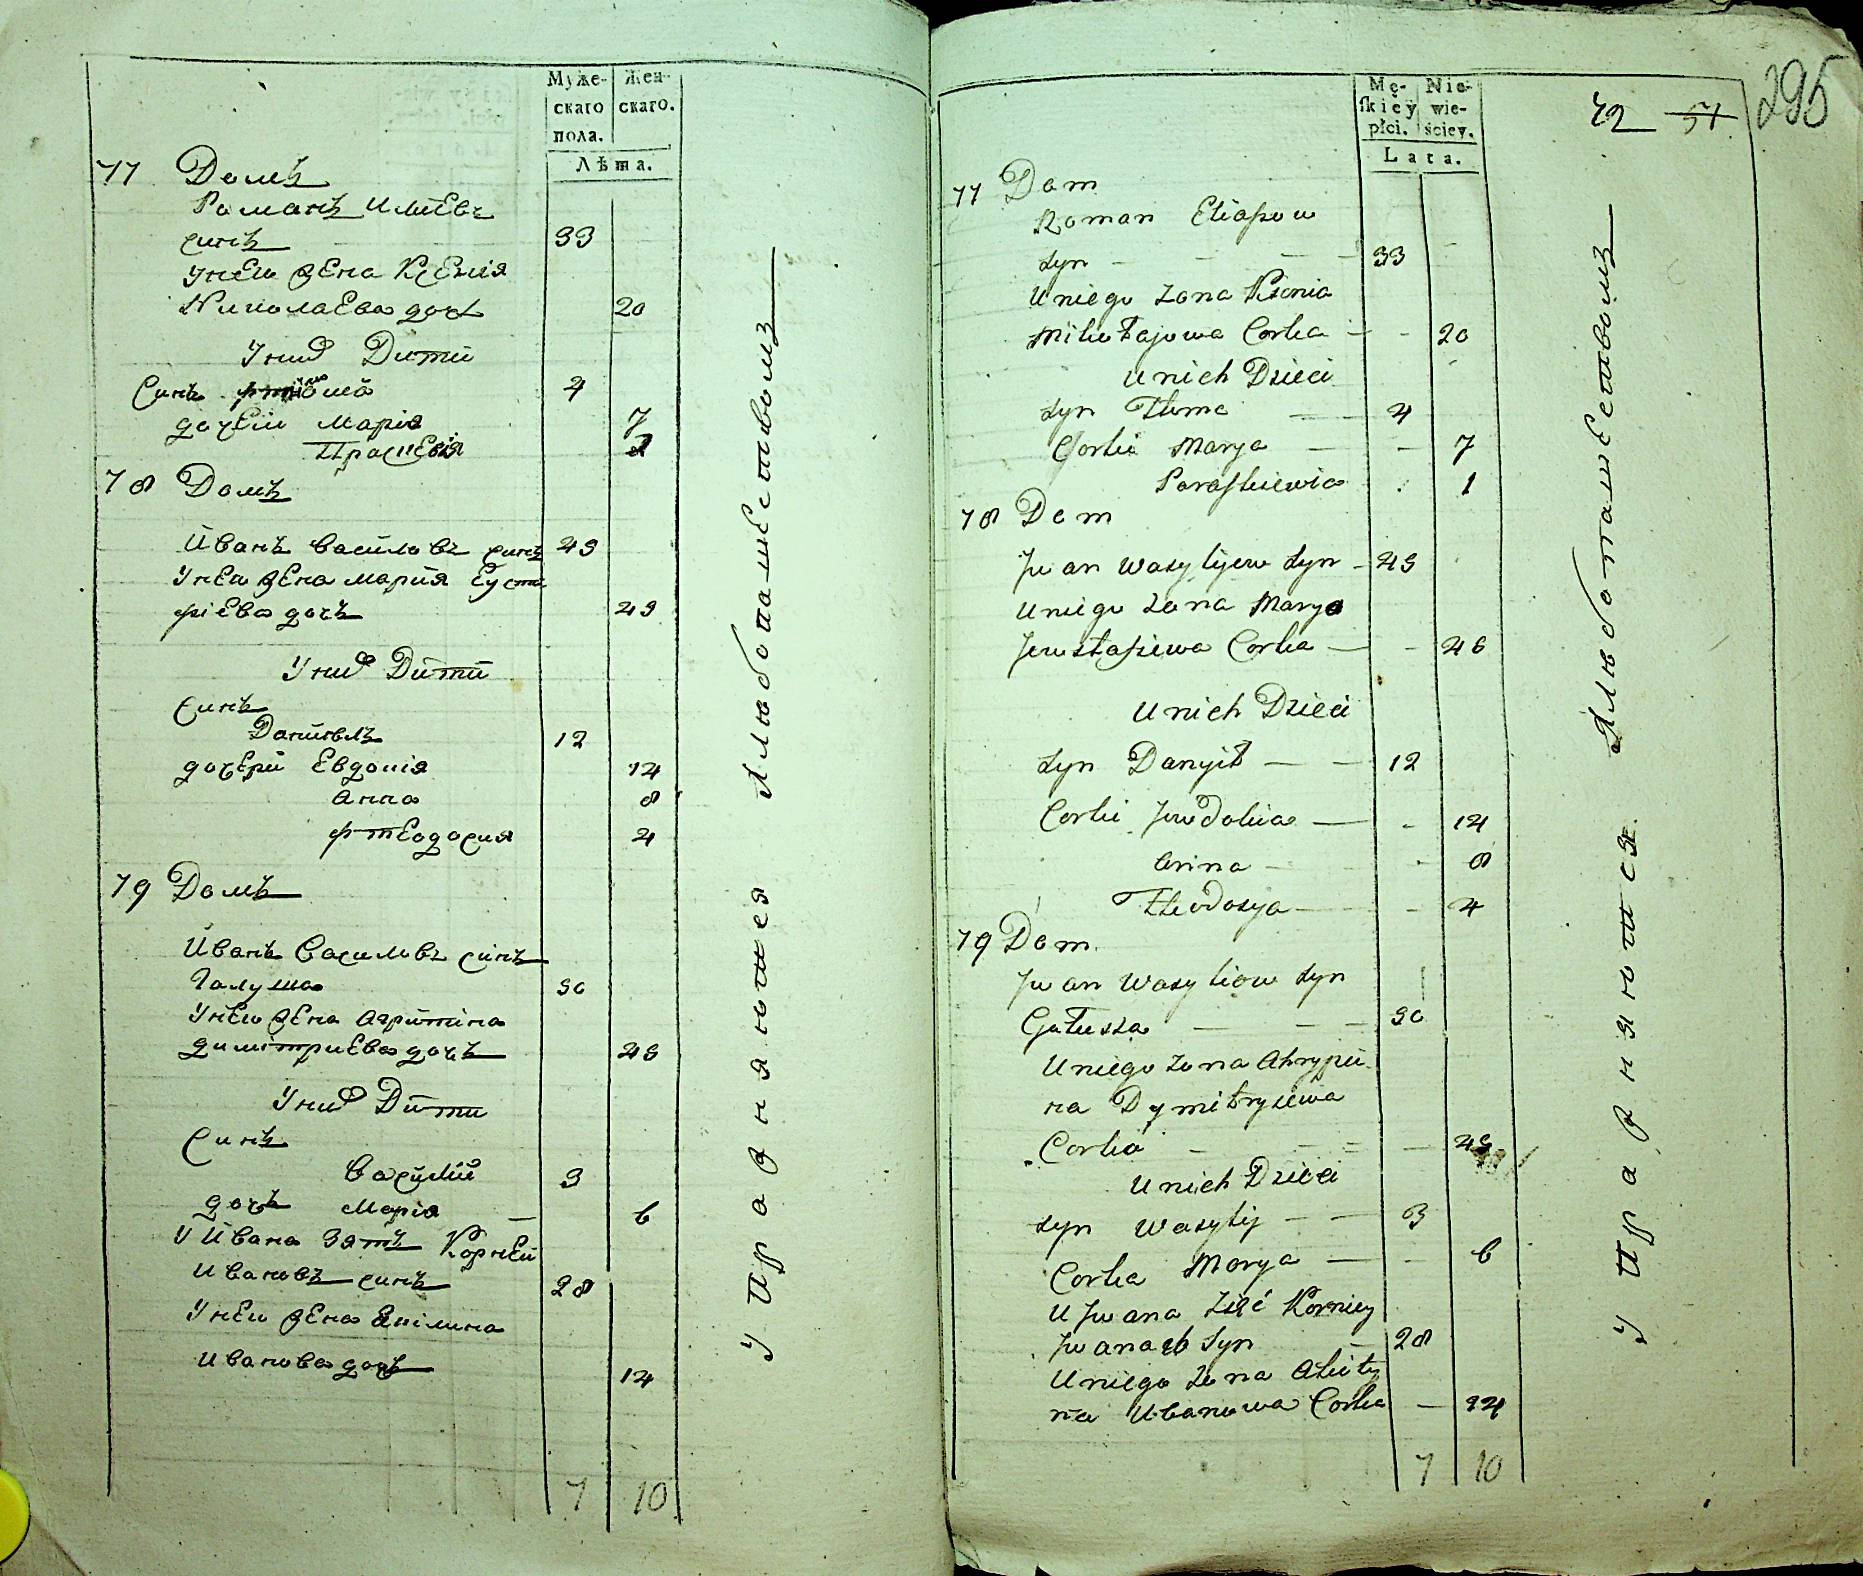 Муже-
скаго
пола.
Жен-
скаго.
Лѣта.
77 Домъ
Романъ Илиевъ
синъ 33
Унего жена Ксения
Николаева дочь 20
Унихъ Дити
Синъ Фтома 4
дочери Мария 7
Праскевия
78 Домъ
Иванъ Василовъ синъ 49
Унего жена Мария Еуста
фиева дочь 49
Унихъ Дити
синъ
Даниилъ 12
дочери Евдокия 14
Анна 8
Фтеодосия 4
79 Домъ
Иванъ Василовъ синъ
Галуша 50
Унего жена Агрипина
Димитриева дочь 49
Унихъ Дити
Синъ
Василий 3
дочь Мария 6
У Ивана Зять Корней
Ивановъ синъ 28
Унего жена Акилина
Иванова дочь 14
7 10
Упражняются Хлюбопашествомъ
Mę-
skiey
płci.
Nie-
wie-
ściey.
Lata.
42 51
295
77 Dom
Roman Eliaszow
Syn 33
Uniego Zona Ksenia
Mikołajowa Corka 20
Unich Dzieci
Syn Thoma 4
Corki Marya 7
Paraskiewia 1
78 Dom
Jwan Wasylijew Syn 49
Uniego Zona Marya
Jewstafiewa Corka 46
Unich Dzieci
Syn Danyił 12
Corki Jewdokia 14
Anna 8
Theodosya 4
79 Dom
Jwan Wasyliow Syn
Gałusza 50
Uniego Zona Ahrypi
na Dymitryiewa
Corka
Unich Dzieci
Syn Wasylij 3
Corka Marya 6
U Jwana Zięć Korniey
Jwanow Syn 28
Uniego Zona Akiły
na Iwanowa Corka
7 10
Упражняются Хлюбопашествомъ